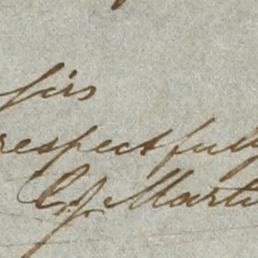 Sirs
respectfully
C J Marti